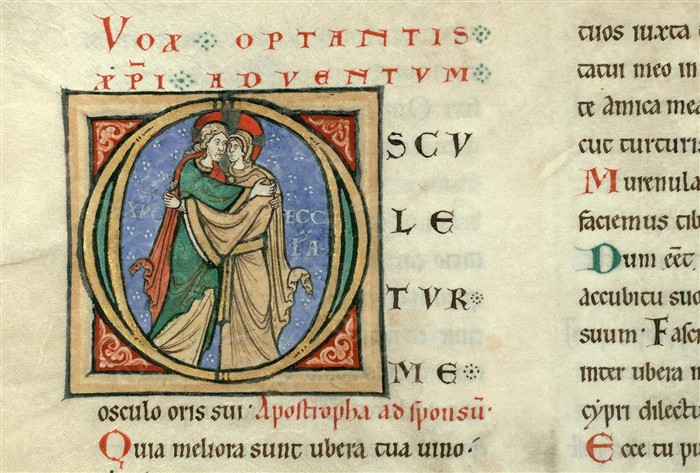 VOX OPTANTIS
XPI ADVENTUM
O
XPC ECC
IA
SCV
LE
TVR
ME
osculo oris sui · Apostropha ad sponsū ·
Quia meliora sunt ubera tua uino ·
tuos iuxta
tatui meo in
te Amica mea
cut turturis
Murenula
faciemus tib
Dum eēt
accubitu suo
suum · Fasc
inter ubera m
cypri dilect
Ecce tu pu